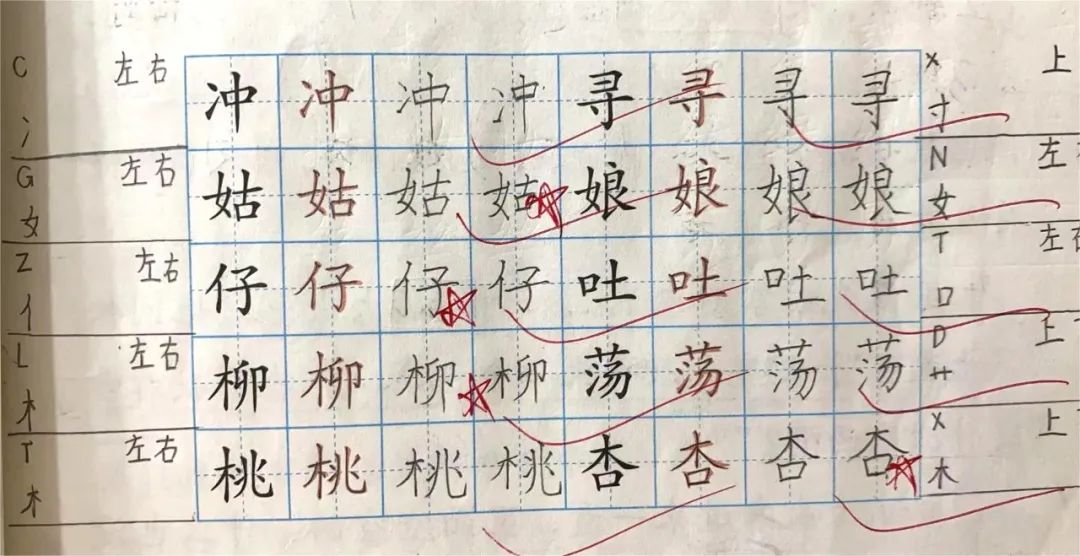 C 左右 冲 冲 冲 冲 寻 寻 寻 寻 X 上
冫 寸
G 左右 姑 姑 姑 姑 娘 娘 娘 娘 N 左
女 女
Z 左右 仔 仔 仔 仔 吐 吐 吐 吐 T 左
亻 口
L 左右 柳 柳 柳 柳 荡 荡 荡 荡 D 上
木 艹
T 左右 桃 桃 桃 桃 杏 杏 杏 杏 X 上
木 木